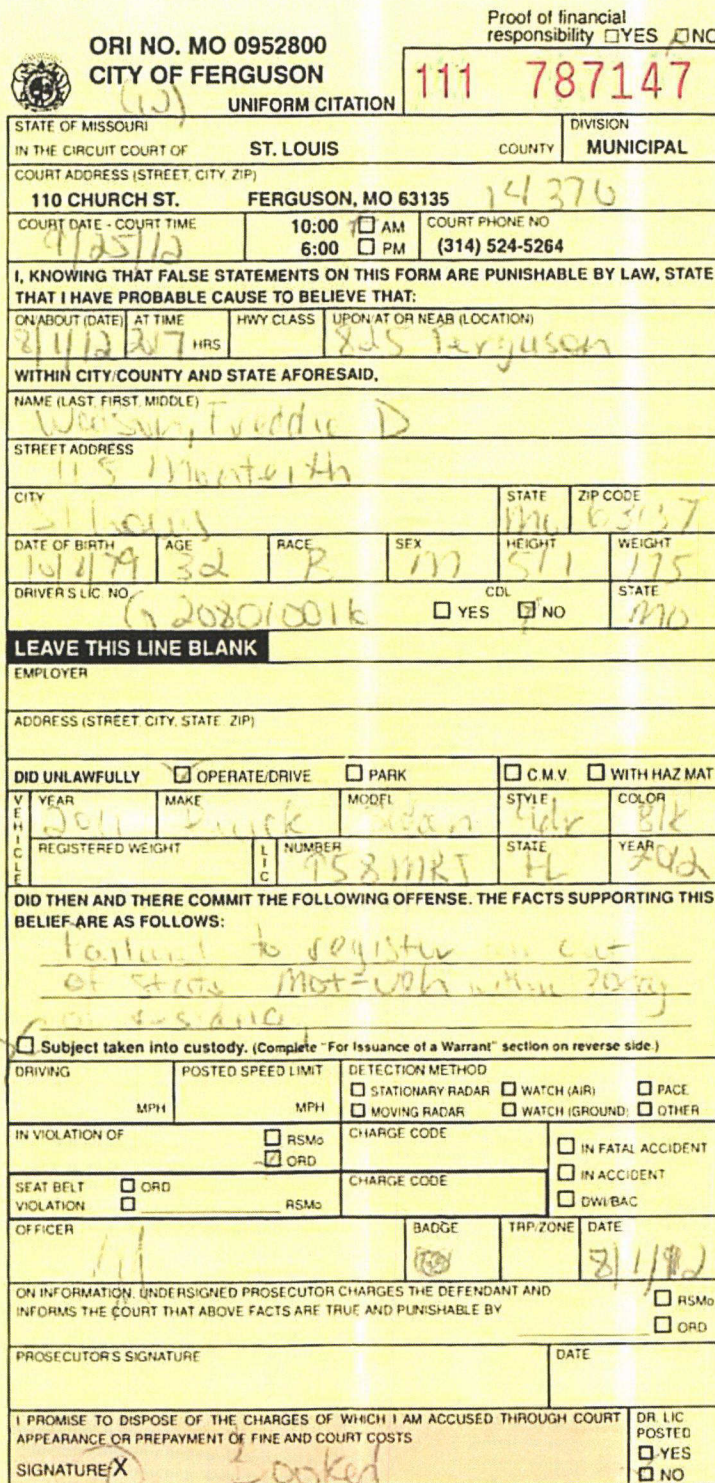 Proof of financial
responsibility ☐YES ☐NO
ORI NO. MO 0952800
CITY OF FERGUSON
UNIFORM CITATION
111 787147
STATE OF MISSOURI
IN THE CIRCUIT COURT OF ST. LOUIS COUNTY
DIVISION
MUNICIPAL
COURT ADDRESS (STREET, CITY, ZIP)
110 CHURCH ST. FERGUSON, MO 63135 14376
COURT DATE - COURT TIME
9/25/12
10:00 ☐ AM
6:00 ☐ PM
COURT PHONE NO
(314) 524-5264
I, KNOWING THAT FALSE STATEMENTS ON THIS FORM ARE PUNISHABLE BY LAW, STATE
THAT I HAVE PROBABLE CAUSE TO BELIEVE THAT:
ON/ABOUT (DATE) AT TIME HWY CLASS UPON/AT OR NEAR (LOCATION)
8/1/12 HRS Ferguson
WITHIN CITY/COUNTY AND STATE AFORESAID,
NAME (LAST, FIRST, MIDDLE)
Freddie D
STREET ADDRESS
115 Monteith
CITY STATE ZIP CODE
St Louis Mo 63137
DATE OF BIRTH AGE RACE SEX HEIGHT WEIGHT
32 B M 175
DRIVER'S LIC. NO. CDL STATE
☐ YES ☐ NO MO
LEAVE THIS LINE BLANK
EMPLOYER
ADDRESS (STREET, CITY, STATE, ZIP)
DID UNLAWFULLY ☑ OPERATE/DRIVE ☐ PARK ☐ C.M.V. ☐ WITH HAZ MAT
VEHICLE YEAR MAKE MODEL STYLE COLOR
2011 Buick Sedan 4dr Blk
REGISTERED WEIGHT LIC NUMBER STATE YEAR
FL
DID THEN AND THERE COMMIT THE FOLLOWING OFFENSE. THE FACTS SUPPORTING THIS
BELIEF ARE AS FOLLOWS:
to register an out
of state Mot-veh within
☐ Subject taken into custody. (Complete "For Issuance of a Warrant" section on reverse side.)
DRIVING POSTED SPEED LIMIT DETECTION METHOD
MPH MPH ☐ STATIONARY RADAR ☐ WATCH (AIR) ☐ PACE
☐ MOVING RADAR ☐ WATCH (GROUND) ☐ OTHER
IN VIOLATION OF ☐ RSMo CHARGE CODE
☑ ORD
☐ IN FATAL ACCIDENT
☐ IN ACCIDENT
☐ DWI/BAC
SEAT BELT ☐ ORD CHARGE CODE
VIOLATION ☐ RSMo
OFFICER BADGE TRP/ZONE DATE
8/1/12
ON INFORMATION, UNDERSIGNED PROSECUTOR CHARGES THE DEFENDANT AND
INFORMS THE COURT THAT ABOVE FACTS ARE TRUE AND PUNISHABLE BY ☐ RSMo
☐ ORD
PROSECUTOR'S SIGNATURE DATE
I PROMISE TO DISPOSE OF THE CHARGES OF WHICH I AM ACCUSED THROUGH COURT
APPEARANCE OR PREPAYMENT OF FINE AND COURT COSTS
SIGNATURE X Booked
DR. LIC
POSTED
☐ YES
☐ NO